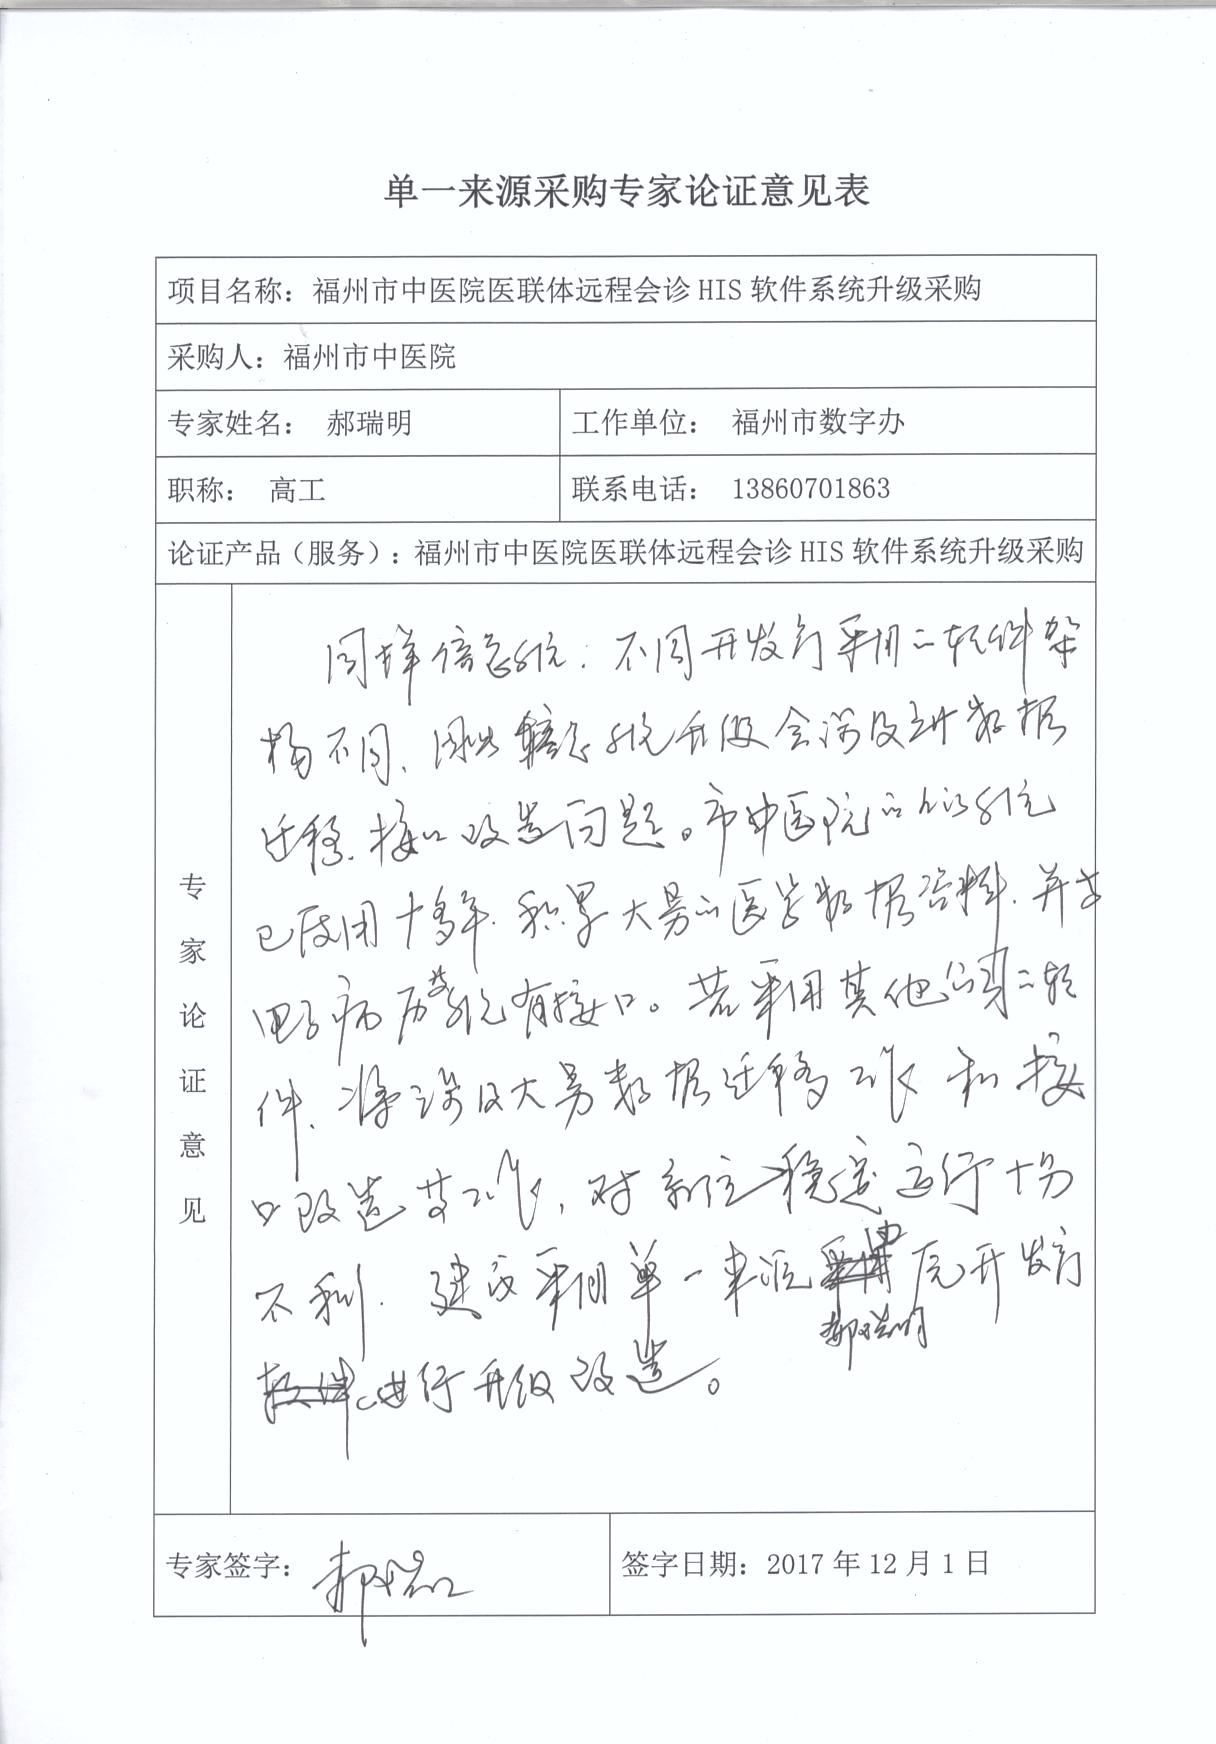 单一来源采购专家论证意见表
项目名称：福州市中医院医联体远程会诊 HIS 软件系统升级采购
采购人：福州市中医院
专家姓名： 郝瑞明
工作单位： 福州市数字办
职称： 高工
联系电话： 13860701863
论证产品（服务）：福州市中医院医联体远程会诊 HIS 软件系统升级采购
专家论证意见
同样信息系统，不同开发商采用的软件架
构不同、因此 系统升级会涉及到数据
迁移、接口改造问题。市中医院的 系统
已使用十多年，积累大量的医学数据资料，并与
电子病历 系统有接口。若采用其他公司的软
件，将涉及大量数据迁移工作和接
口改造 工作，对系统稳定运行十分
不利。建议采用单一来源 由原开发商
进行升级改造。
郝瑞明
专家签字： 郝瑞明
签字日期：2017 年 12 月 1 日